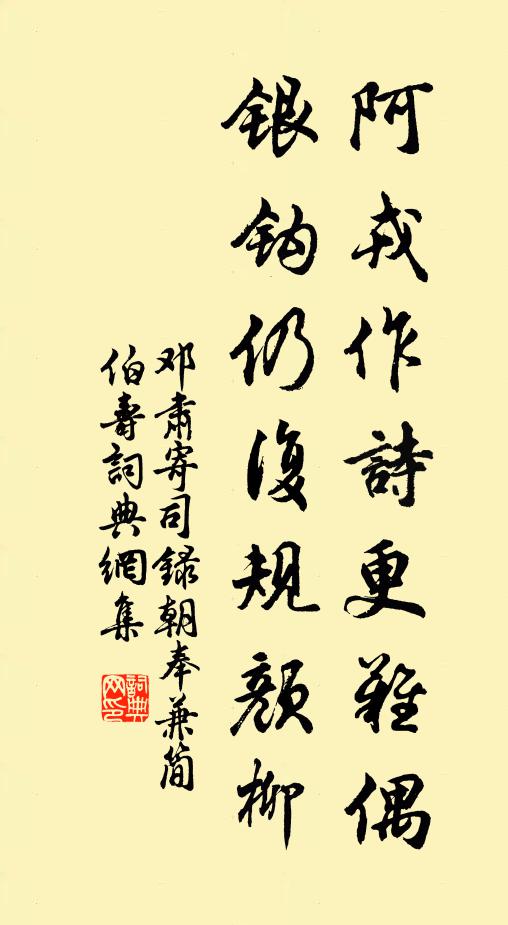 阿戎作詩更難偶
銀鈎仍復規顏柳
邓肅寄司録朝奉兼简
伯壽詞典網集
詞典
网印